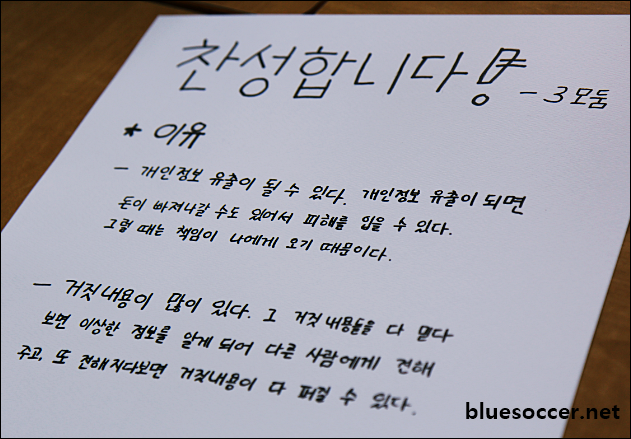 찬성합니다!
- 3모둠
* 이유
- 개인정보 유출이 될 수 있다. 개인정보 유출이 되면
돈이 빠져나갈 수도 있어서 피해를 입을 수 있다.
그럴 때는 책임이 나에게 오기 때문이다.
- 거짓내용이 많이 있다. 그 거짓내용들을 다 믿다
보면 이상한 정보를 알게 되어 다른 사람에게 전해
주고, 또 전해지다보면 거짓내용이 다 퍼질 수 있다.
bluesoccer.net